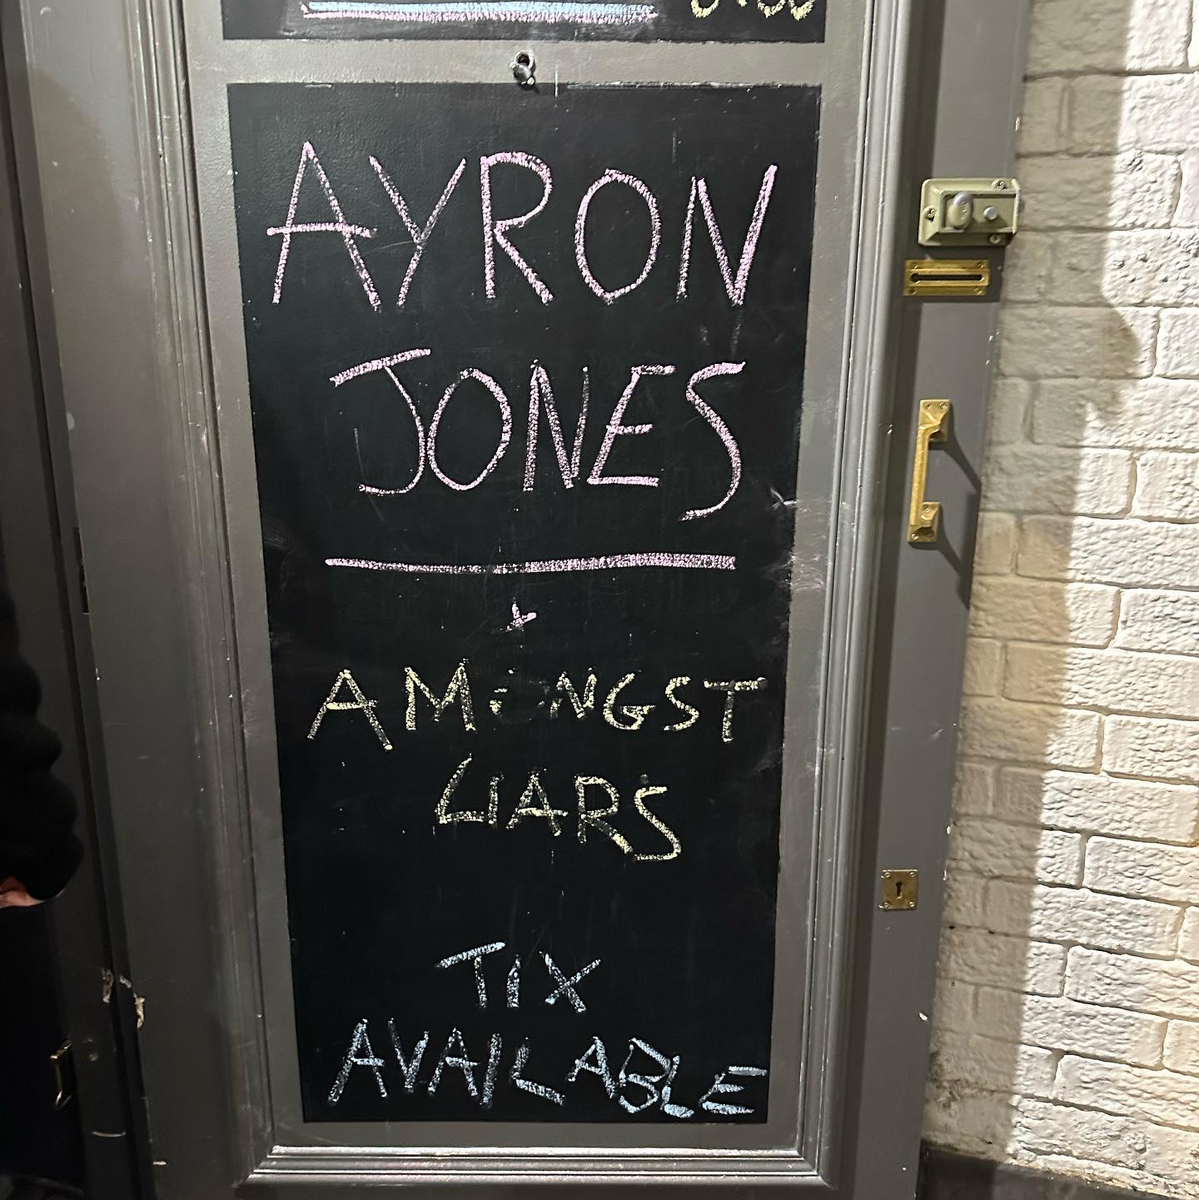 AYRON
JONES
+
AMONGST
LIARS
TIX
AVAILABLE